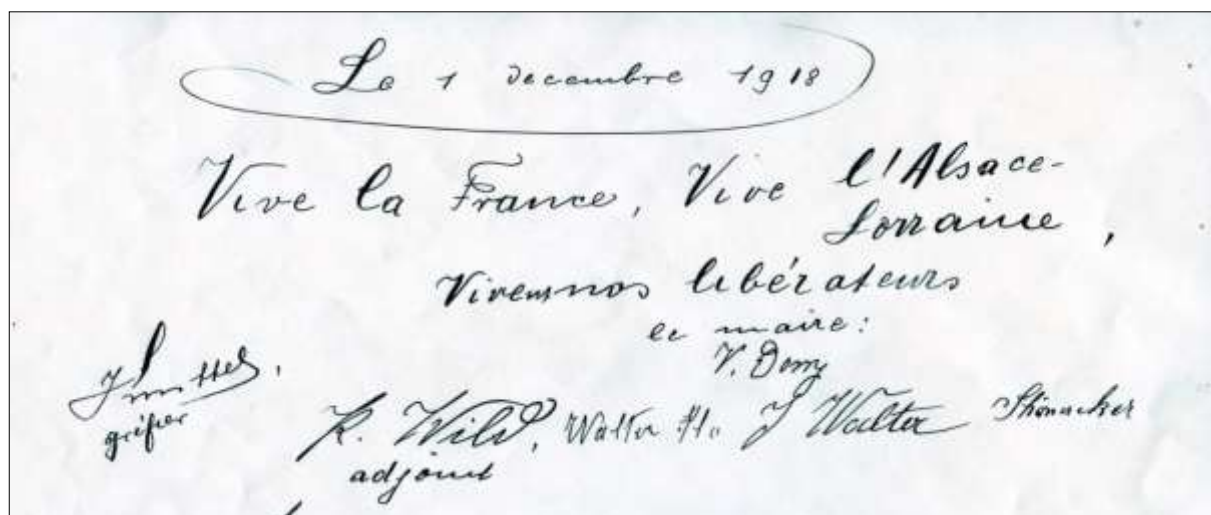 Le 1 decembre 1918
Vive la France, Vive l'Alsace-
Lorraine,
Vivent nos libérateurs
le maire:
V. Dorny
gréfier
K. Wild, Walter J Walter
adjoint